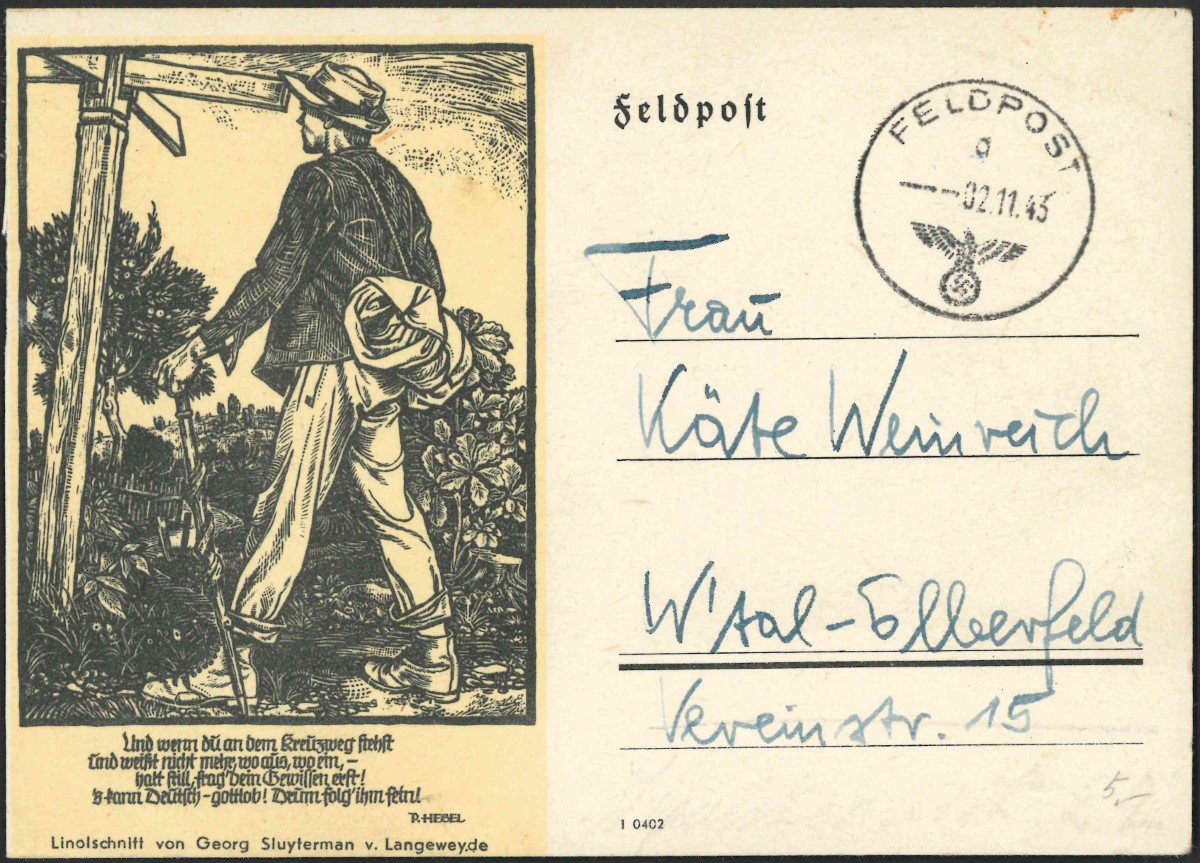 Und wenn dü an dem Kreüzweg stehst
Und weißt nicht mehr, wo aus, wo ein, –
halt still, frag' dein Gewissen erst!
's kann Deütsch – gottlob! Drüm folg' ihm fein!
P. HEBEL
Linolschnitt von Georg Sluyterman v. Langeweyde
Feldpost
FELDPOST
a
--02.11.43
Frau
Käte Weinreich
W'tal-Elberfeld
Vereinstr. 15
5,–
I 0402